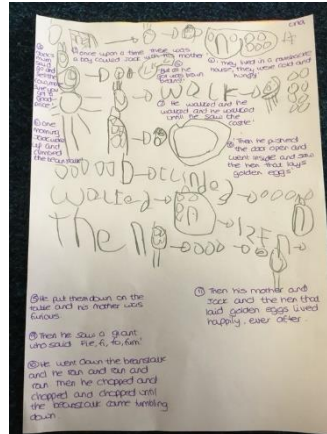 and
① once upon a time there was
a boy called Jack with his mother
② They lived in a
house, they were cold and
hungry
③
mum
said
go and
sell the
you
get a
good
price
④ But he
got was bean
beans!
WOLK
⑦ He walked and he
walked and he walked
until he saw the
castle!
⑥ One
morning
Jack woke
up and
climbed
the beanstalk
⑧ Then he pushed
the door open and
went inside and saw
the hen that lays
golden eggs
climbd
wolked
then
hen
⑤ He put them down on the
table and his mother was
furious
⑨ Then he saw a giant
who said Fie, fi, fo, fum!
⑩ He went down the beanstalk
and he ran and ran and
ran. Then he chopped and
chopped and chopped until
the beanstalk came tumbling
down
⑪ Then his mother and
Jack and the hen that
laid golden eggs lived
happily, ever after.